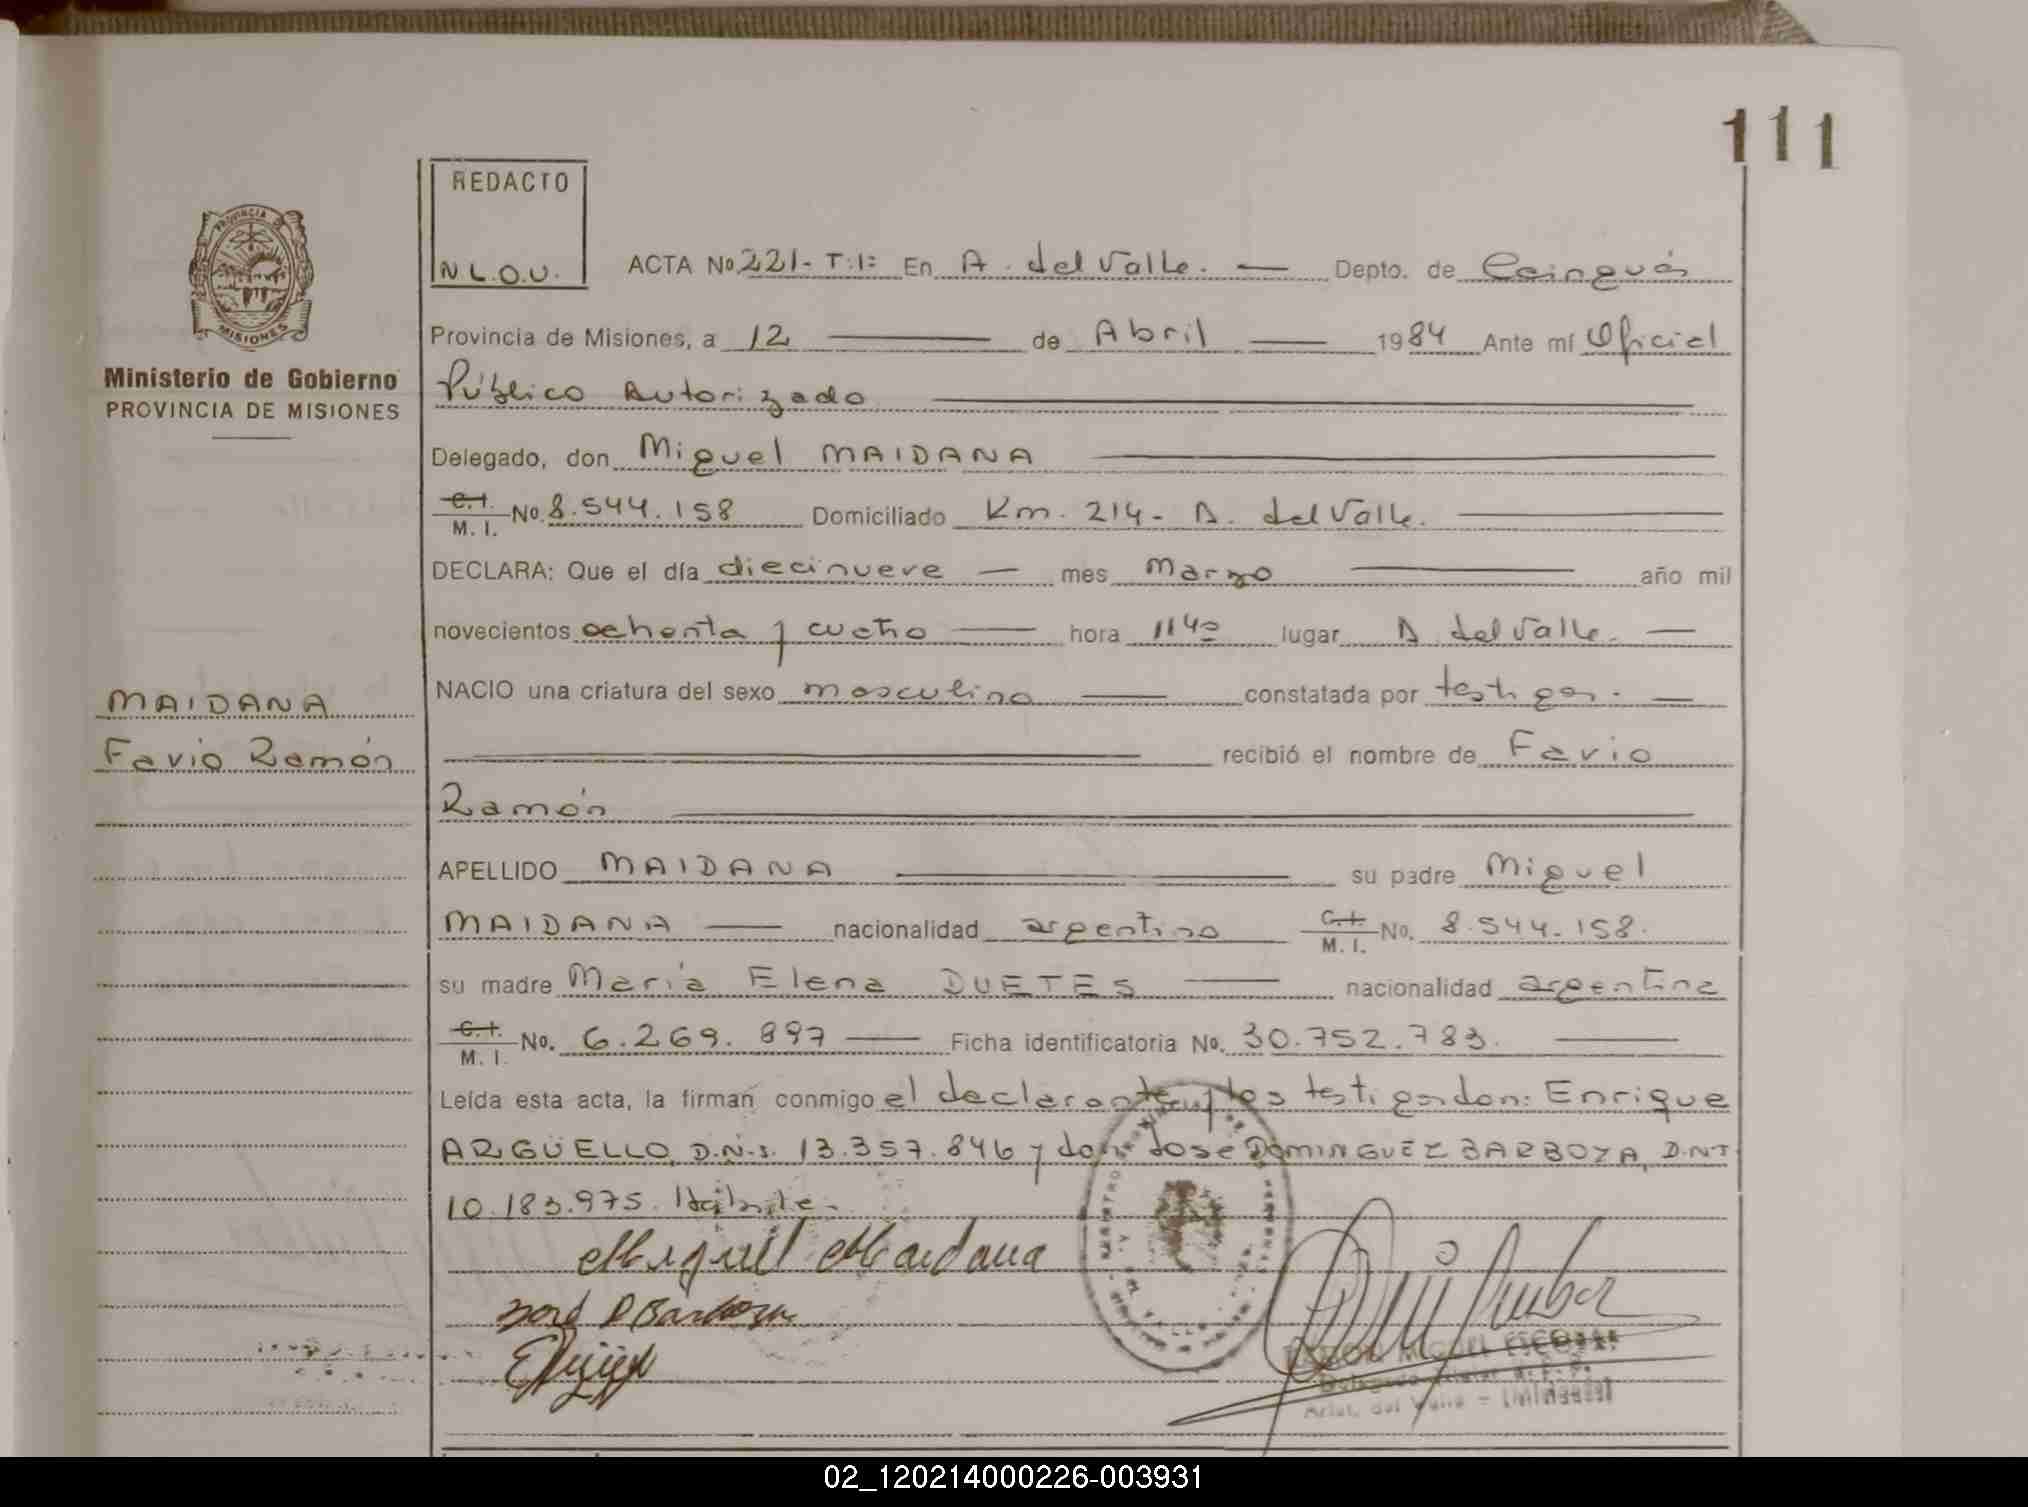 111
REDACTO
N L.O.U.
ACTA No 221- T:I: En A. del Valle. — Depto. de Cainguás
Provincia de Misiones, a 12 — de Abril — 1984 Ante mí Oficial
Público Autorizado
Ministerio de Gobierno
PROVINCIA DE MISIONES
Delegado, don Miguel MAIDANA
C.I. M. I. No. 8.544.158 Domiciliado Km. 214- A. del Valle.
DECLARA: Que el día diecinueve — mes Marzo — año mil
novecientos ochenta y cuatro — hora 1140 lugar A. del Valle. —
NACIO una criatura del sexo masculino — constatada por testigos. —
MAIDANA
Favio Ramón
recibió el nombre de Favio
Ramón
APELLIDO MAIDANA — su padre Miguel
MAIDANA — nacionalidad argentino C.I. M. I. No. 8.544.158.
su madre María Elena DUETES — nacionalidad argentina
C.I. M. I. No. 6.269.897 — Ficha identificatoria No. 30.752.783. —
Leída esta acta, la firman conmigo el declarante y los testigos don: Enrique
ARGÜELLO, D.N.I. 13.357.846 y don José DOMINGUEZ BARBOZA, D.N.I
10.183.975. Hábile.
Miguel Maidana
José D Barboza
MIGUEL ESCOBAR
del Valle - (Misiones)
02_120214000226-003931